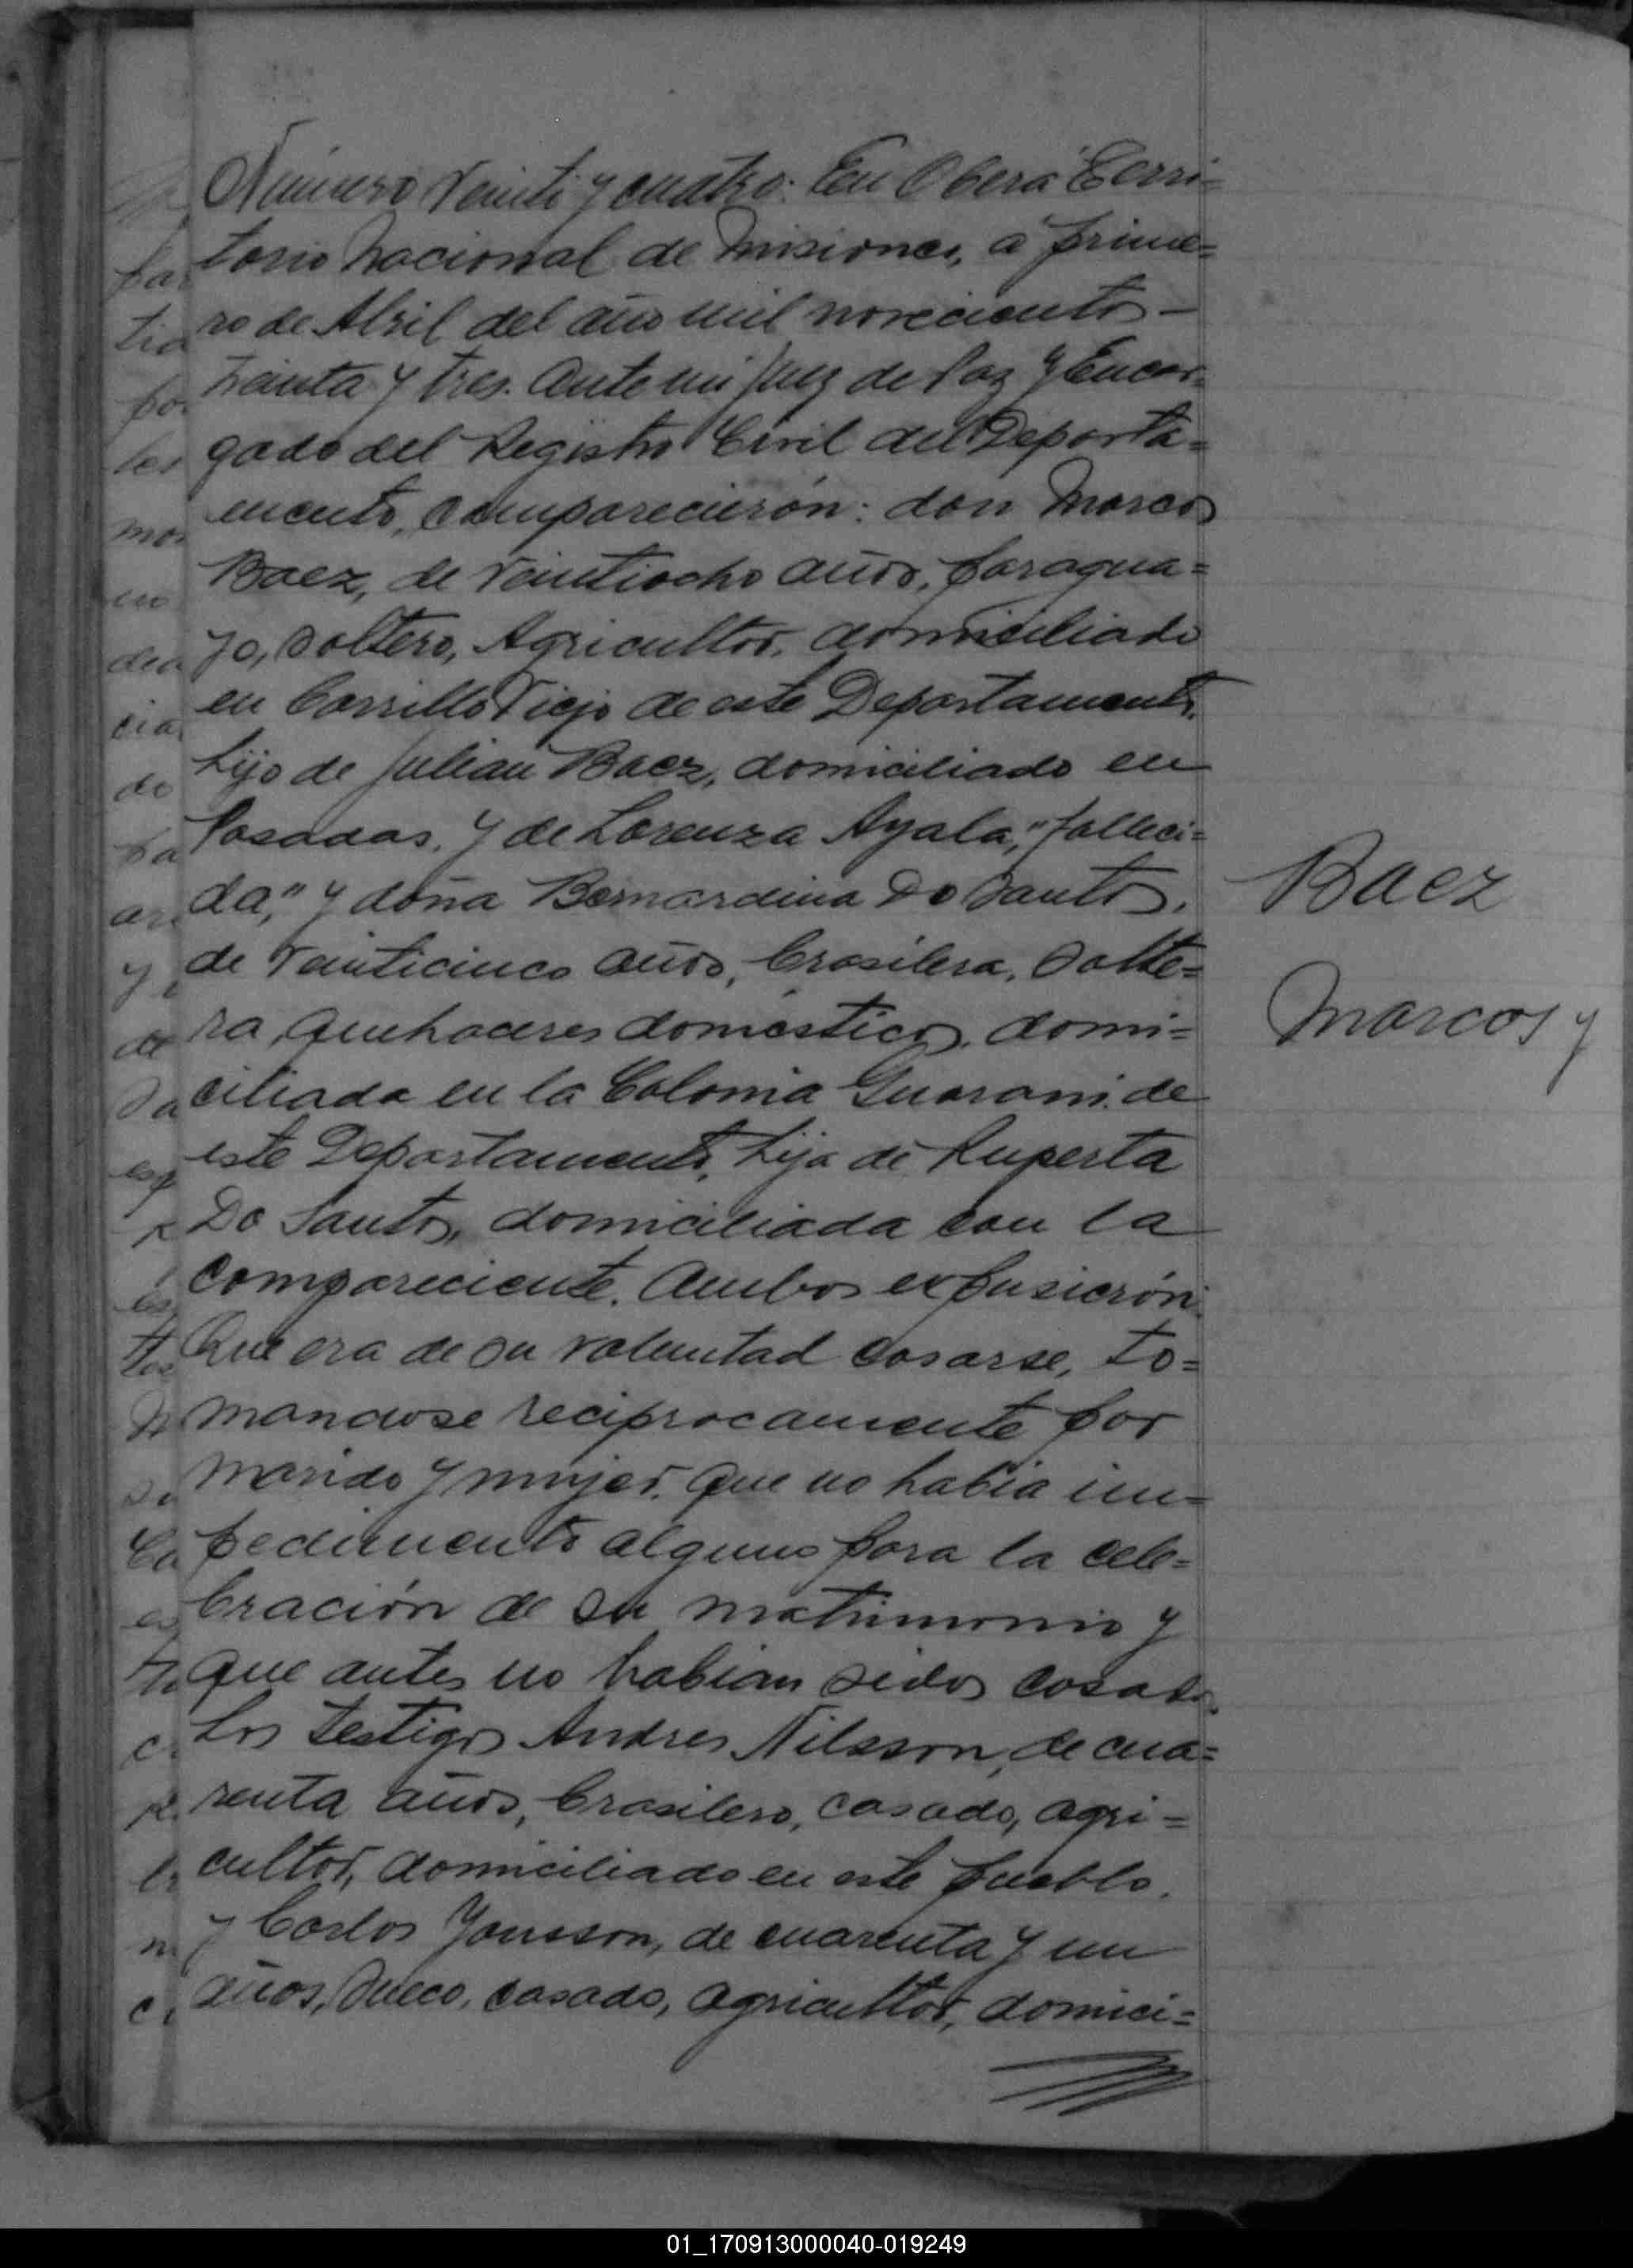 Número veinti y cuatro: En Oberá Terri=
torio Nacional de Misiones, a prime=
ro de Abril del año mil novecientos -
treinta y tres. Ante mi Juez de Paz y Encar=
gado del Registro Civil del Departa=
mento, comparecierón: don Marcos
Baez, de veintiocho años, paragua=
yo, soltero, Agricultor, domiciliado
en Cerrillo Viejo de este Departamento,
hijo de Julian Baez, domiciliado en
Posadas, y de Lorenza Ayala, "falleci=
da," y doña Bernardina Do Santos,
de veinticinco años, brasilera, solte=
ra, quehaceres domésticos, domi=
ciliada en la Colonia Guarani de
este Departamento, hija de Ruperta
Do Santos, domiciliada con la
compareciente. Ambos expusierón:
Que era de su voluntad casarse, to=
mandose reciprocamente por
marido y mujer, que no había im=
pedimento alguno para la cele=
bración de su matrimonio y
que antes no habian sidos casados.
Los testigos Andres Nilsson, de cua=
renta años, brasilero, casado, agri=
cultor, domiciliado en este pueblo,
y Carlos Jonsson, de cuarenta y un
años, sueco, casado, agricultor, domici=
Baez
Marcos y
01_170913000040-019249